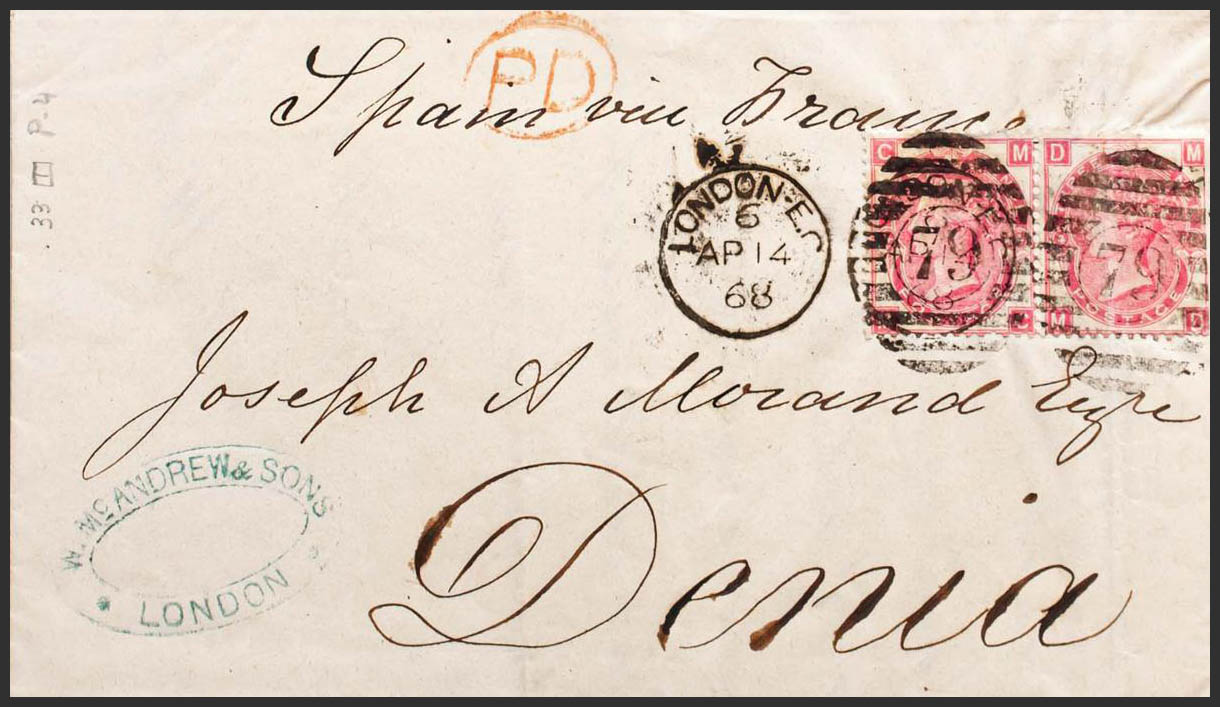 PD
Spain via France
33 P.4
LONDON-E.C
6
AP 14
68
C M D M
79 79
POSTAGE
M D
Joseph A Morand Esqre
W. McANDREW & SONS
LONDON
Denia